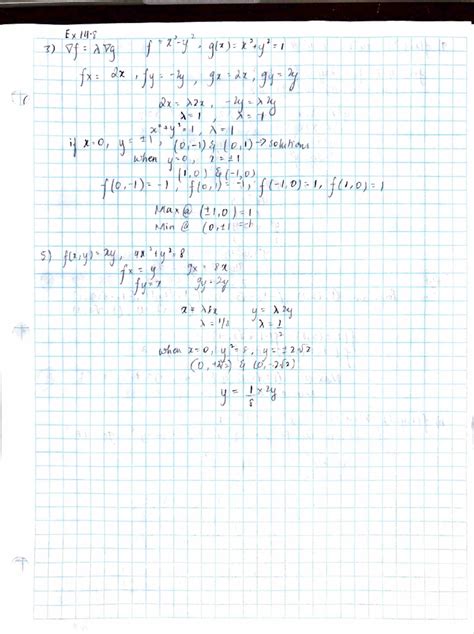 Ex 14.8
3) ∇f = λ∇g f = x² - y² g(x) = x² + y² = 1
fx = 2x, fy = -2y, gx = 2x, gy = 2y
2x = λ2x, -2y = λ2y
λ = 1, λ = -1
x² + y² = 1, λ = 1
if x=0, y = ±1, (0,-1) & (0,1) → solutions
when y=0, x = ±1
(1,0) & (-1,0)
f(0,-1) = -1, f(0,1) = -1, f(-1,0) = 1, f(1,0) = 1
Max @ (±1,0) = 1
Min @ (0,±1 = -1
5) f(x,y) = xy, 4x² + y² = 8
fx = y gx = 8x
fy = x gy = 2y
x = λ8x y = λ2y
λ = 1/8 λ = 1/2
when x=0, y² = 8, y = ±2√2
(0, +2√2) & (0, -2√2)
y = 1/8 × 2y